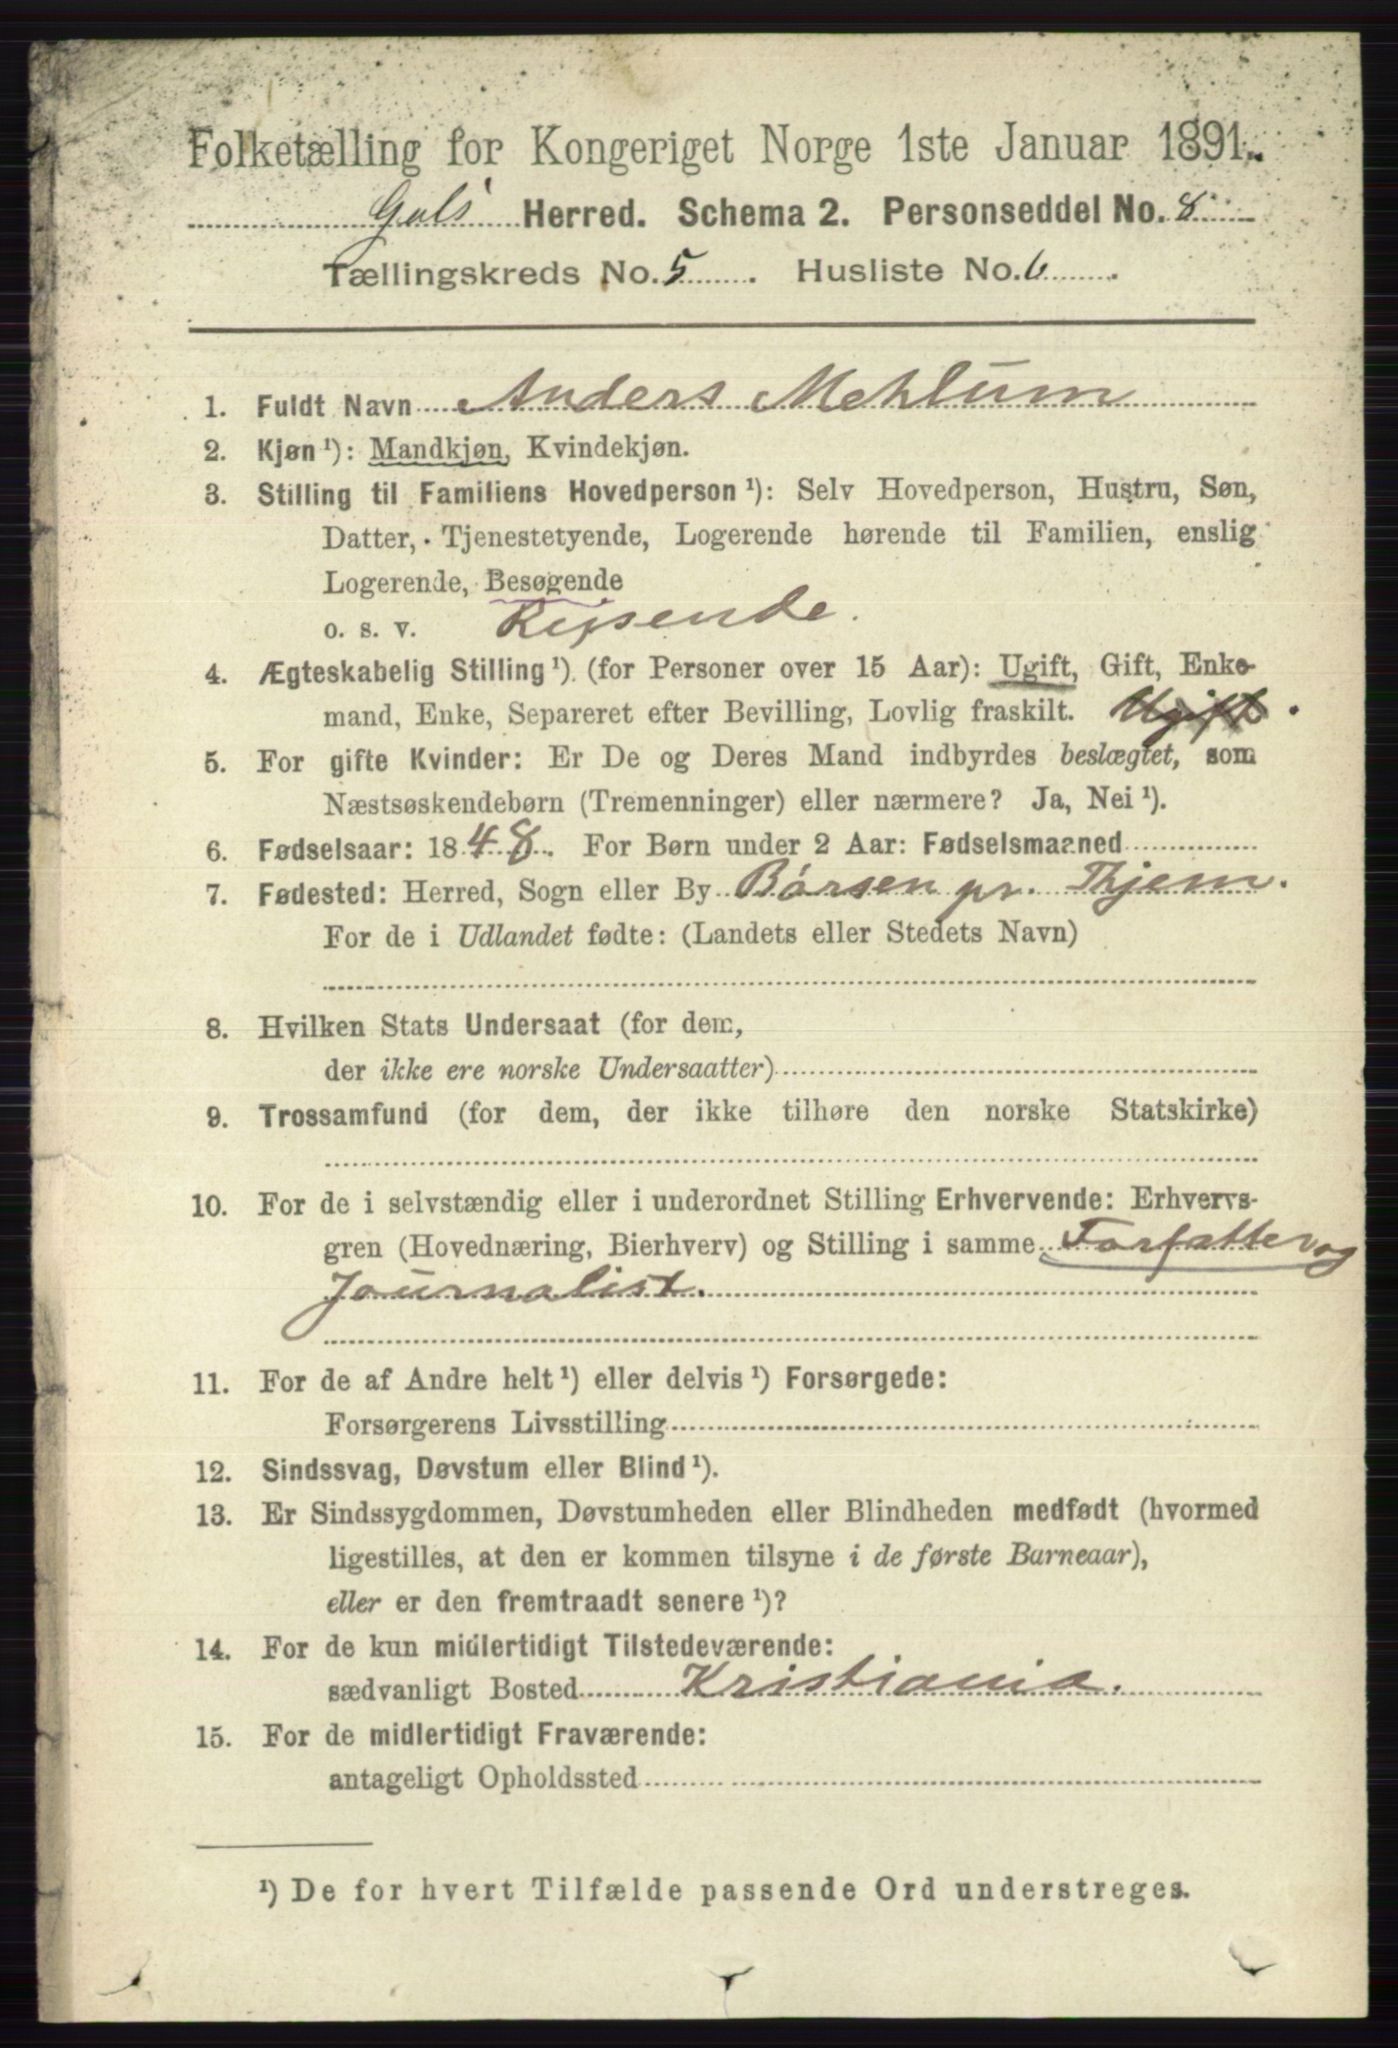 Folketælling for Kongeriget Norge 1ste Januar 1891.
Gols Herred. Schema 2. Personseddel No. 8
Tællingskreds No. 5. Husliste No. 6.
1. Fuldt Navn Anders Mehlum
2. Kjøn ¹): Mandkjøn, Kvindekjøn.
3. Stilling til Familiens Hovedperson ¹): Selv Hovedperson, Hustru, Søn,
Datter, Tjenestetyende, Logerende hørende til Familien, enslig
Logerende, Besøgende
o. s. v. Rejsende.
4. Ægteskabelig Stilling ¹). (for Personer over 15 Aar): Ugift, Gift, Enke-
mand, Enke, Separeret efter Bevilling, Lovlig fraskilt. Ugift.
5. For gifte Kvinder: Er De og Deres Mand indbyrdes beslægtet, som
Næstsøskendebørn (Tremenninger) eller nærmere? Ja, Nei ¹).
6. Fødselsaar: 1848. For Børn under 2 Aar: Fødselsmaaned
7. Fødested: Herred, Sogn eller By Børsen pr. Thjem.
For de i Udlandet fødte: (Landets eller Stedets Navn)
8. Hvilken Stats Undersaat (for dem,
der ikke ere norske Undersaatter)
9. Trossamfund (for dem, der ikke tilhøre den norske Statskirke)
10. For de i selvstændig eller i underordnet Stilling Erhvervende: Erhvervs-
gren (Hovednæring, Bierhverv) og Stilling i samme Forfatter og
Journalist.
11. For de af Andre helt ¹) eller delvis ¹) Forsørgede:
Forsørgerens Livsstilling
12. Sindssvag, Døvstum eller Blind ¹).
13. Er Sindssygdommen, Døvstumheden eller Blindheden medfødt (hvormed
ligestilles, at den er kommen tilsyne i de første Barneaar),
eller er den fremtraadt senere ¹)?
14. For de kun midlertidigt Tilstedeværende:
sædvanligt Bosted Kristiania.
15. For de midlertidigt Fraværende:
antageligt Opholdssted
¹) De for hvert Tilfælde passende Ord understreges.